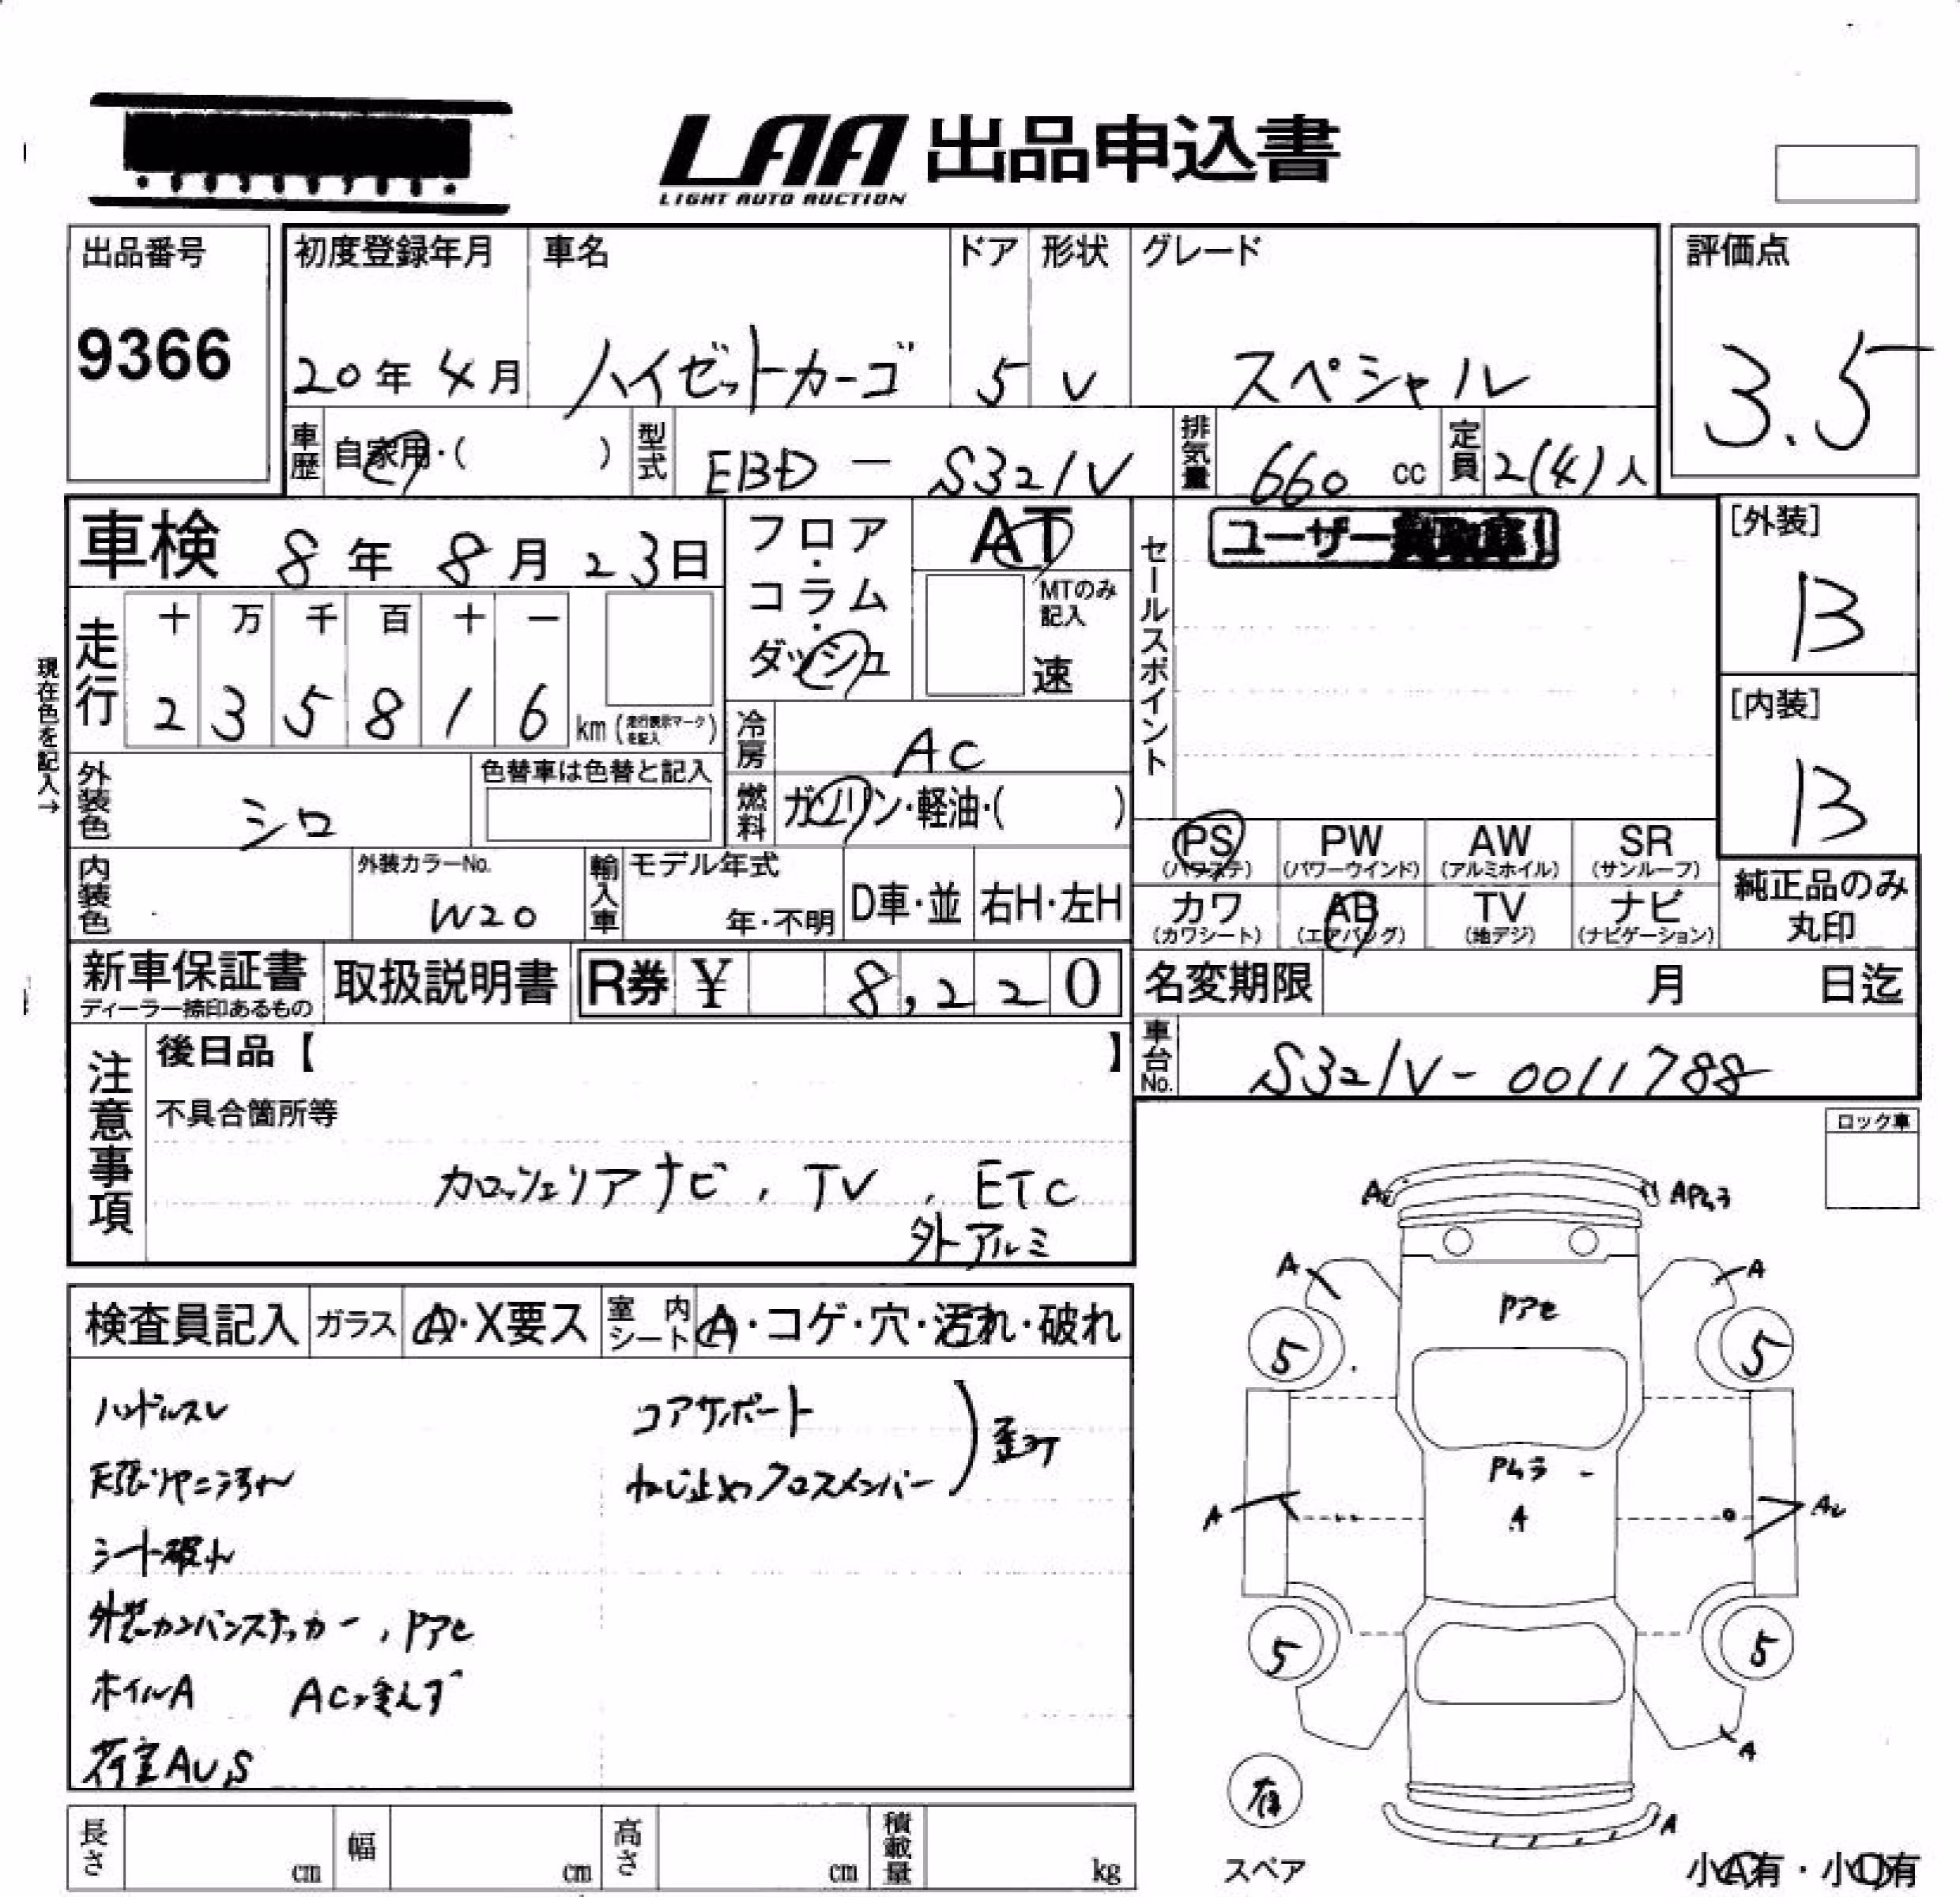 LAA 出品申込書
LIGHT AUTO AUCTION
出品番号
9366
初度登録年月
20年 4月
車名
ハイゼットカーゴ
ドア
5
形状
V
グレード
スペシャル
評価点
3.5
車歴 自家用・( )
型式 EBD - S321V
排気量 660 cc
定員 2(4)人
車検 8年 8月 23日
フロア・コラム・ダッシュ
AT
MTのみ記入
速
セールスポイント
ユーザー
[外装]
B
現在色を記入→
走行
十 万 千 百 十 一
2 3 5 8 1 6 km (走行表示マークを記入)
冷房 AC
[内装]
B
外装色 シロ
色替車は色替と記入
燃料 ガソリン・軽油・( )
PS (パワステ)
PW (パワーウインド)
AW (アルミホイル)
SR (サンルーフ)
内装色
外装カラーNo.
W20
輸入車
モデル年式
年・不明
D車・並
右H・左H
カワ (カワシート)
AB (エアバッグ)
TV (地デジ)
ナビ (ナビゲーション)
純正品のみ丸印
新車保証書
ディーラー捺印あるもの
取扱説明書
R券 ¥ 8,220
名変期限 月 日迄
車台No. S321V-0011788
注意事項
後日品【 】
不具合箇所等
カロッツェリアナビ, TV, ETC
外アルミ
ロック車
検査員記入
ガラス A・X要ス
室内シート A・コゲ・穴・汚れ・破れ
ハンドルスレ
コアサポート
天張りヤニ汚れ
ねじ止めクロスメンバー
シート破れ
外装カンバンステッカー, Pアセ
ホイルA
荷室AU,S
A
APムラ
A
A
Pアセ
5
5
Pムラ
A
A
5
5
A
A
有
スペア
小A有・小U有
長さ cm
幅 cm
高さ cm
積載量 kg